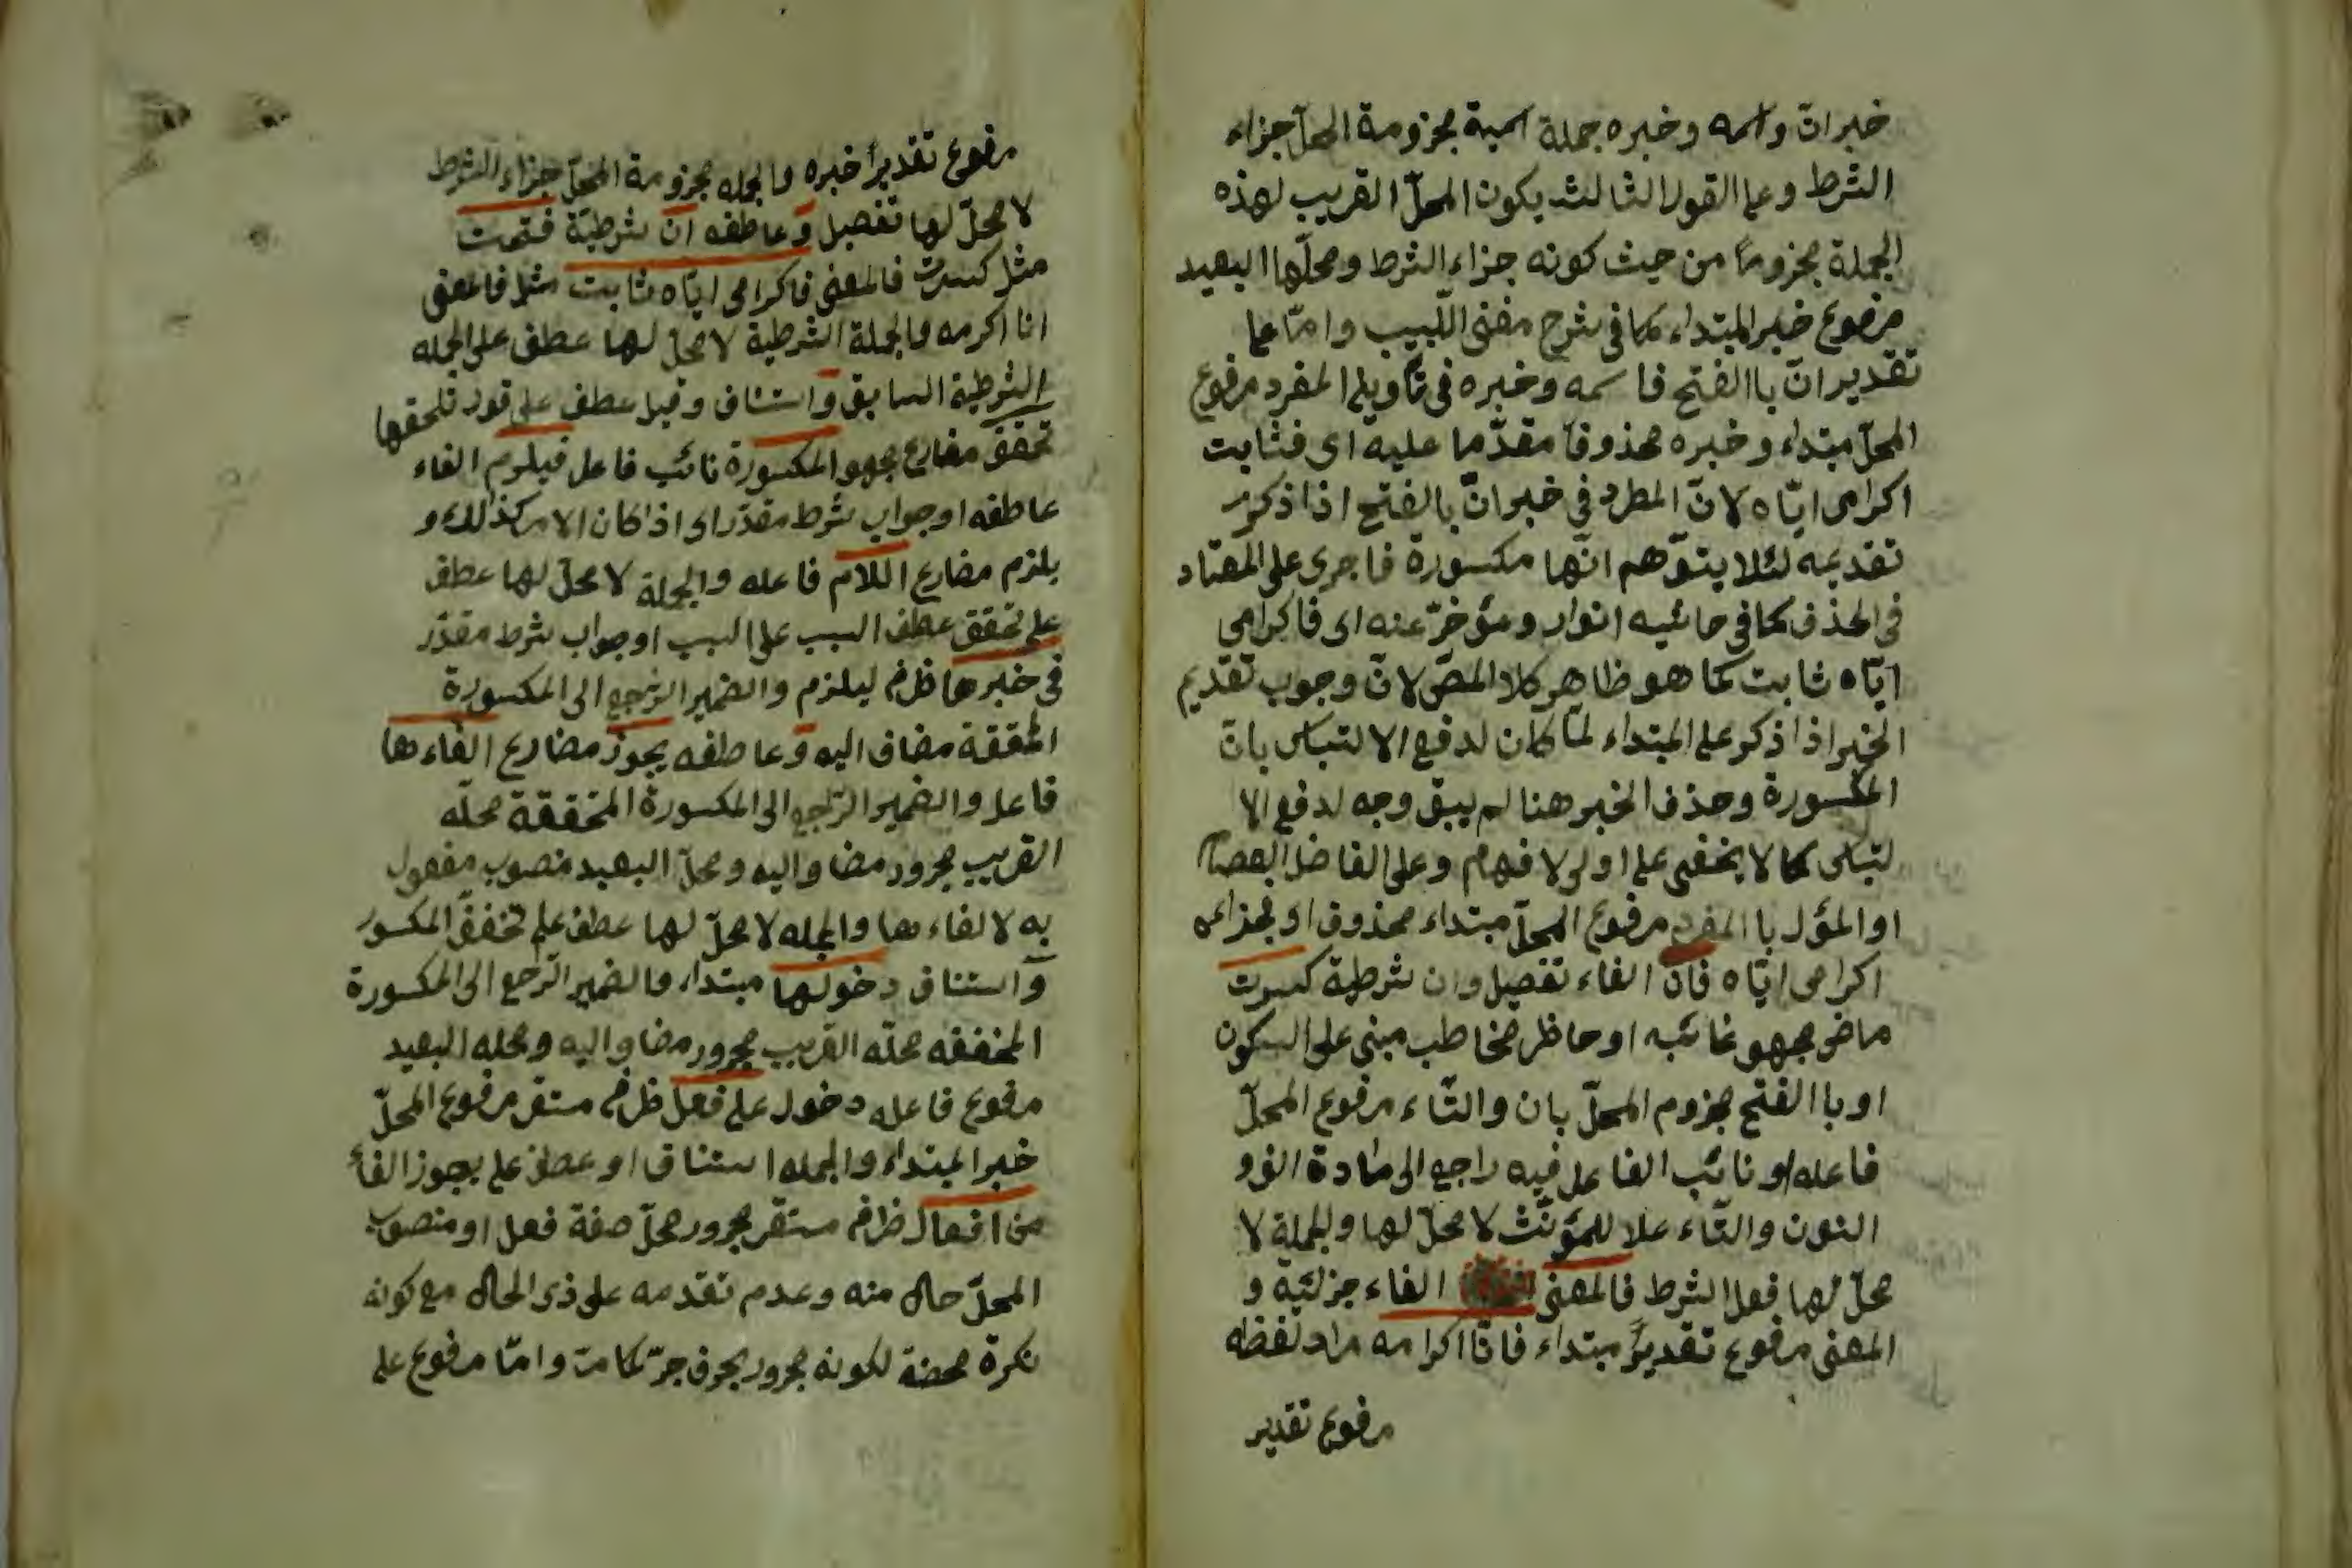 خبر ان واسمه وخبره جملة اسمية مجزومة المحلّ جزاء
الشرط وعلى القول الثالث يكون المحلّ القريب لهذه
الجملة مجزوماً من حيث كونه جزاء الشرط ومحلّها البعيد
مرفوع خبر المبتداء كما فى شرح مغنى اللّبيب وامّا على
تقدير انّ باالفتح فاسمه وخبره فى تأويل المفرد مرفوع
المحلّ مبتداء وخبره محذوفا مقدّما عليه اى فثابت
اكرامى ايّاه لانّ المطرد فى خبر انّ بالفتح اذا ذكر
تقديمه لئلا يتوّهم انّها مكسورة فاجرى على المعتاد
فى الحذف كما فى حاشيه انوار ومؤخرّ عنه اى فاكرامى
ايّاه ثابت كما هو ظاهر كلا المصّ لانّ وجوب تقديم
الخبر اذا ذكر على المبتداء لمّا كان لدفع الالتباس بانّ
المكسورة وحذف الخبر هنا لم يبق وجه لدفع الا
لتباس كما لا يخفى على اولى الافهام وعلى الفاضل العصام
او المؤل با المفرد مرفوع المحلّ مبتداء محذوف او فجزائه
اكرامى ايّاه فان الفاء تفصيل وان شرطية كسرت
ماض مجهو غائبه او حاظر مخاطب مبنى على السكون
او با الفتح مجزوم المحلّ بان والتّاء مرفوع المحلّ
فاعله او نائب الفاعل فيه راجع الى مادة الفرو
النون والتّاء علا للمؤنّث لا محلّ لها والجملة لا
محلّ لها فعل الشرط فالمعنى الفاء جزئية و
المعنى مرفوع تقديرً مبتداء فانّا اكرامه مراد لفظه
مرفوع تقدير
مرفوع تقديراً خبره والجمله مجزومة المحلّ جزاء الشرط
لا محلّ لها تفصيل وعاطفه ان شرطيّة فتحت
مثل كسرت فالمعنى فاكرامى ايّاه ثابت مثل فالمعنى
انا اكرمه والجملة الشرطية لا محلّ لها عطف على الجمله
الشرطية السابق واستناف وقيل عطف على قور تلحقها
تخفف مضارع مجهو المكسورة نائب فاعل فيلزم الفاء
عاطفه او جواب شرط مقدّر اى اذا كان الامر كذالك و
يلزم مضارع اللام فاعله والجملة لا محلّ لها عطف
على تحقق عطف السبب على السبب او جواب شرط مقدّر
فى خبرها ظرف ليلزم والضمير الرّجع الى المكسورة
المخففة مضاف اليه وعاطفه يجوز مضارع الغاءها
فاعل والضمير الرّاجع الى المكسورة المتخففة محلّه
القريب مجرور مضا واليه ومحلّ البعيد منصوب مفعول
به لالغاءها والجمله لا محلّ لها عطف على تخفف المكسور
واستناف دخولها مبتداء والضمير الرّجع الى المكسورة
المخففه محلّه القريب مجرور مضا واليه ومحله البعيد
مرفوع فاعله دخول على فعل ظرف مستقر مرفوع المحلّ
خبر المبتداء والجمله استناف او عطف على يجوز الفأ
من افعال ظرف مستقر مجرور محلّ صفة فعل او منصوب
المحلّ حال منه وعدم تقدمه على ذى الحال مع كونه
نكرة محضة لكونه مجرور بحرف جرّ كما مت وامّا مرفوع على